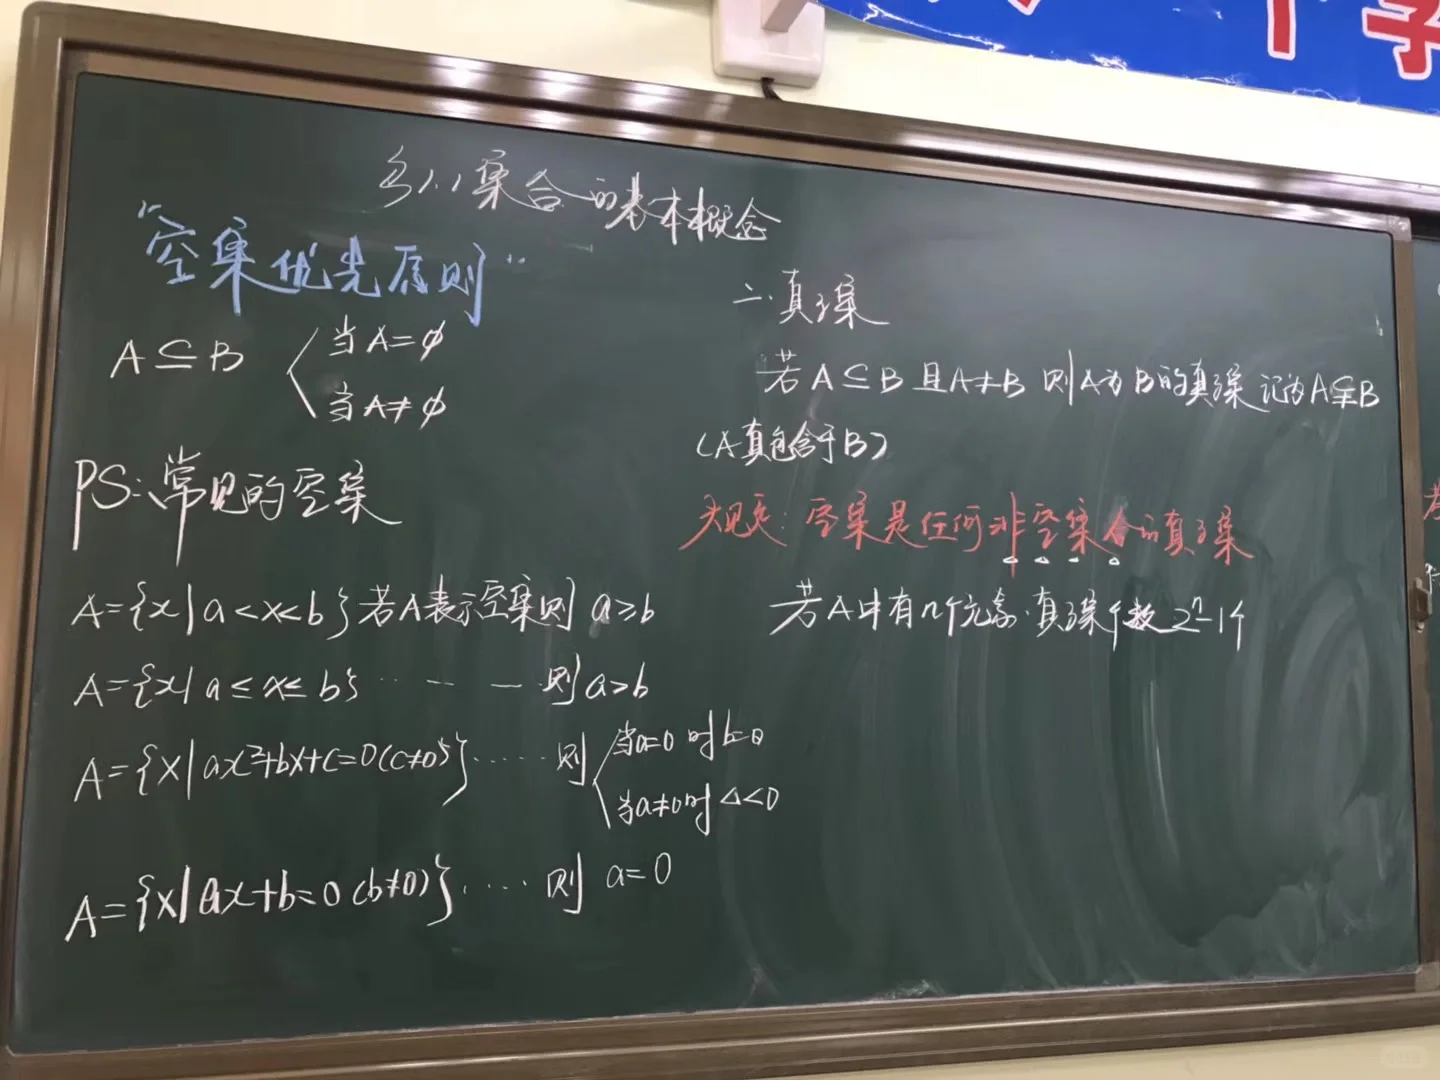 §1.1集合的基本概念
"空集优先原则"
A⊆B
当A=∅
当A≠∅
PS:常见的空集
A={x|a<x<b}若A表示空集则 a≥b
A={x|a≤x≤b}……则a>b
A={x|ax²+bx+c=0(c≠0)}……则
当a=0时b=0
当a≠0时△<0
A={x|ax+b=0(b≠0)}……则 a=0
二.真子集
若A⊆B且A≠B 则A为B的真子集 记为A⫋B
(A真包含于B)
规定:空集是任何非空集合的真子集
若A中有n个元素.真子集个数2ⁿ-1个